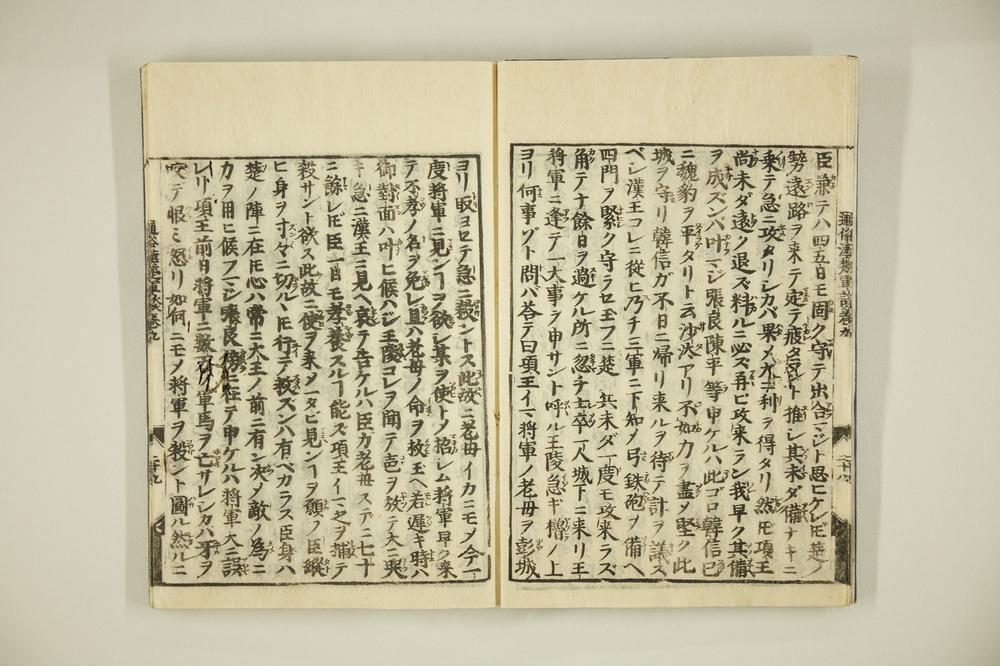 臣兼テハ四五日モ固ク守テ出合マジト思ヒケレ𪜈楚ノ
勢遠路ヲ来テ定テ疲タラント推シ其未ダ備ナキニ
乗テ急ニ攻タリシカバ果メ大ニ利ヲ得タリ然𪜈項王
尚未ダ遠ク退ズ料ルニ必ズ再ビ攻来ラン我早ク其備
ヲ成ズンバ叶マジ張良陳平等申ケルハ此ゴロ韓信已
ニ魏豹ヲ平タリト云沙汰アリ不如力ヲ盡メ堅ク此
城ヲ守リ韓信ガ不日ニ帰リ来ルヲ待テ計ヲ議ス
ベシ漢王コレニ從ヒ乃チ三軍ニ下知メ弓鉄砲ヲ備ヘ
四門ヲ緊ク守ラセ玉フニ楚ノ兵未ダ一度モ攻来ラズ
角テ十余日ヲ過ケル所ニ忽チ士卒一人城下ニ来リ王
将軍ニ逢テ一大事ヲ申サント呼ル王陵急ギ櫓ノ上
ヨリ何事ゾト問バ答テ曰項王イマ将軍ノ老母ヲ彭城
通俗漢楚軍談巻九
二十八
ヨリ取ヨセテ急ニ殺ントス此故ニ老母イカニモメ今一
度将軍ニ見ンヿヲ欲シ某ヲ使トメ招シム将軍早ク来
テ不孝ノ名ヲ免レ且ハ老母ノ命ヲ救玉ヘ若遅キ時ハ
御對面ハ叶ヒ候ハジ王陵コレヲ聞テ声ヲ放テ大ニ哭
キ急ニ漢王ニ見ヘ哀テ告ケルハ臣カ老母ステニ七十
ニ餘レ𪜈臣一日モ孝養スルヿ能ズ項王イマ之ヲ捕テ
殺サント欲ス此故ニ使ヲ来メ一タビ見ンヿヲ願ノ臣縦
ヒ身ヲ寸々ニ切ルヽ𪜈行テ救ズンハ有ベカラス臣身ハ
楚ノ陣ニ在𪜈心ハ常ニ大王ノ前ニ有ン決メ敵ノ為ニ
力ヲ用ヒ候フマジ張良傍ニ在テ申ケルハ将軍大ニ誤
レリ項王前日将軍ニ數万ノ軍馬ヲ亡サレシカバ牙ヲ
咬テ恨ミ怒リ如何ニモメ将軍ヲ殺ント圖ル然ルニ
通俗漢楚軍談巻九
二十九